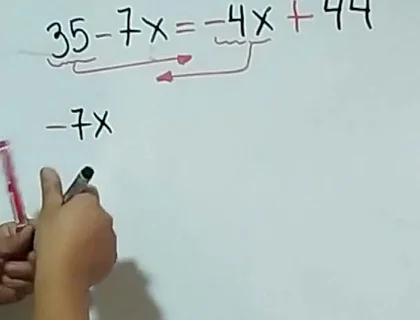 35-7x=-4x+44
-7x